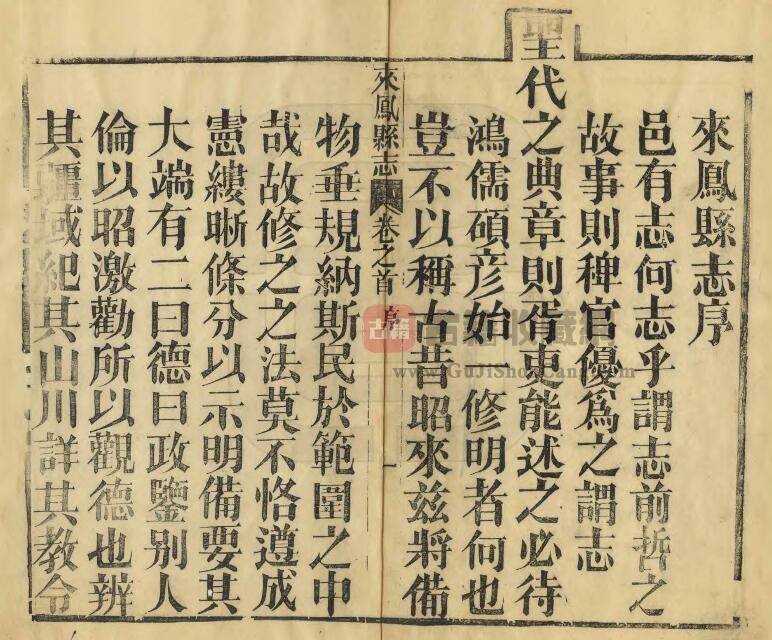 來鳳縣志序
邑有志何志乎謂志前哲之
故事則稗官優爲之謂志
聖代之典章則胥吏能述之必待
鴻儒碩彦始一修明者何也
豈不以稱古昔昭來兹將備
來鳳縣志 卷之首 序 一
物垂規納斯民於範圍之中
哉故修之之法莫不恪遵成
憲縷晰條分以示明備要其
大端有二曰德曰政鑒别人
倫以昭激勸所以觀德也辨
其疆域紀其山川詳其教令
古籍
古書收藏網
www.GuJiShouCang.com